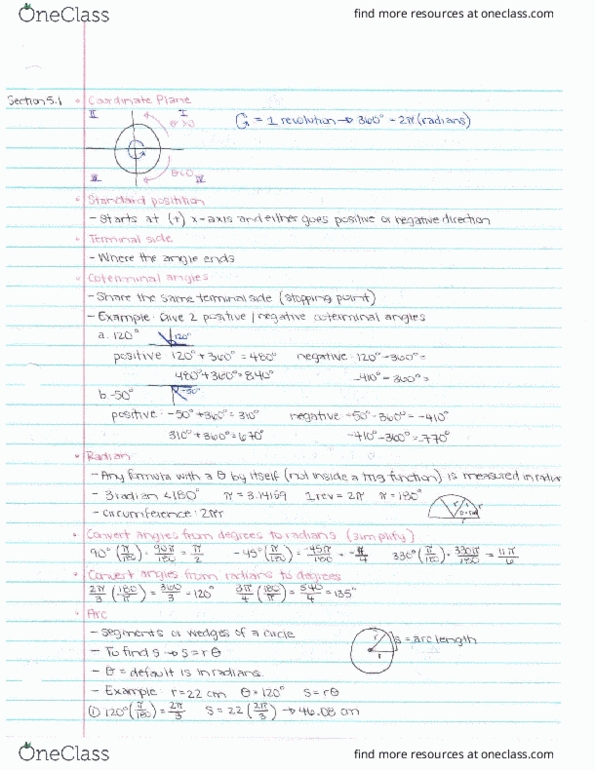 OneClass
find more resources at oneclass.com
Section 5.1 • Coordinate Plane
II I
θ>0
= 1 revolution → 360° - 2π (radians)
III θ<0 IV
• Standard position
- Starts at (+) x-axis and either goes positive or negative direction
• Terminal side
- Where the angle ends
• Coterminal angles
- Share the same terminal side (stopping point)
- Example: Give 2 positive / negative coterminal angles
a. 120° 120°
positive 120° + 360° = 480° negative: 120° - 360° =
480° + 360° = 840° -410° - 360° =
b. -50° -50°
positive: -50° + 360° = 310° negative -50° - 360° = -410°
310° + 360° = 670° -410° - 360° = -770°
• Radian
- Any formula with a θ by itself (not inside a trig function) is measured in radian
- 3 radian < 180° π = 3.14159 1 rev = 2π π = 180°
- circumference: 2πr
• Convert angles from degrees to radians (simplify)
90° (π/180) = 90π/180 = π/2 -45° (π/180) = -45π/180 = -π/4 330° (π/180) = 330π/180 = 11π/6
• Convert angles from radians to degrees
2π/3 (180/π) = 360/3 = 120° 3π/4 (180/π) = 540/4 = 135°
• Arc
- Segments or wedges of a circle
- To find s → s = rθ
s = arc length
- θ = default is in radians.
- Example: r = 22 cm θ = 120° s = rθ
① 120° (π/180) = 2π/3 s = 22 (2π/3) → 46.08 cm
OneClass
find more resources at oneclass.com